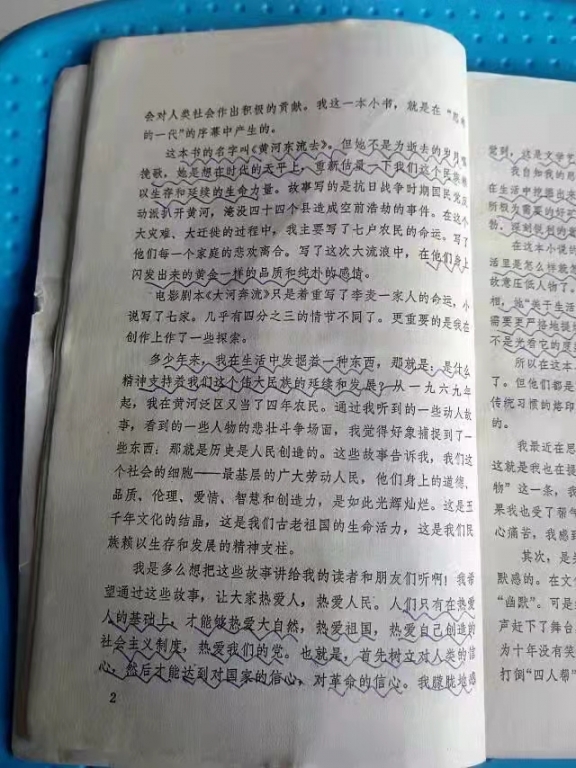 会对人类社会作出积极的贡献。我这一本小书，就是在“思考
的一代”的序幕中产生的。
这本书的名字叫《黄河东流去》。但她不是为逝去的岁月唱
挽歌，她是想在时代的天平上，重新估量一下我们这个民族赖
以生存和延续的生命力量。故事写的是抗日战争时期国民党反
动派扒开黄河，淹没四十四个县造成空前浩劫的事件。在这个
大灾难、大迁徙的过程中，我主要写了七户农民的命运。写了
他们每一个家庭的悲欢离合。写了这次大流浪中，在他们身上
闪发出来的黄金一样的品质和纯朴的感情。
电影剧本《大河奔流》只是着重写了李麦一家人的命运，小
说写了七家。几乎有四分之三的情节不同了。更重要的是我在
创作上作了一些探索。
多少年来，我在生活中发掘着一种东西，那就是：是什么
精神支持着我们这个伟大民族的延续和发展？从一九六九年
起，我在黄河泛区又当了四年农民。通过我听到的一些动人故
事，看到的一些人物的悲壮斗争场面，我觉得好象捕捉到了一
些东西：那就是历史是人民创造的。这些故事告诉我，我们这
个社会的细胞——最基层的广大劳动人民，他们身上的道德、
品质、伦理、爱情、智慧和创造力，是如此光辉灿烂。这是五
千年文化的结晶，这是我们古老祖国的生命活力，这是我们民
族赖以生存和发展的精神支柱。
我是多么想把这些故事讲给我的读者和朋友们听啊！我希
望通过这些故事，让大家热爱人，热爱人民。人们只有在热爱
人的基础上，才能够热爱大自然，热爱祖国，热爱自己创造的
社会主义制度，热爱我们的党。也就是，首先树立对人类的信
心，然后才能达到对国家的信心，对革命的信心。我朦胧地感
2
觉到，这是文学艺
我自知我的思
在生活中挖掘出来
所极为需要的好
在这本小说的
活里是怎么样就怎
故意压低人物了。
相，她“关于生活
需要更严格地提
不是光看它的
所以在这本
了。但他们都是
传统习惯的烙印
的。
我最近在思
这就是我也在提
物”这一条，我
果我也受了帮气
心痛苦，我感到
其次，是
默感的。在文
“幽默”。可是
声赶下了舞台
为十年没有笑
打倒“四人帮”